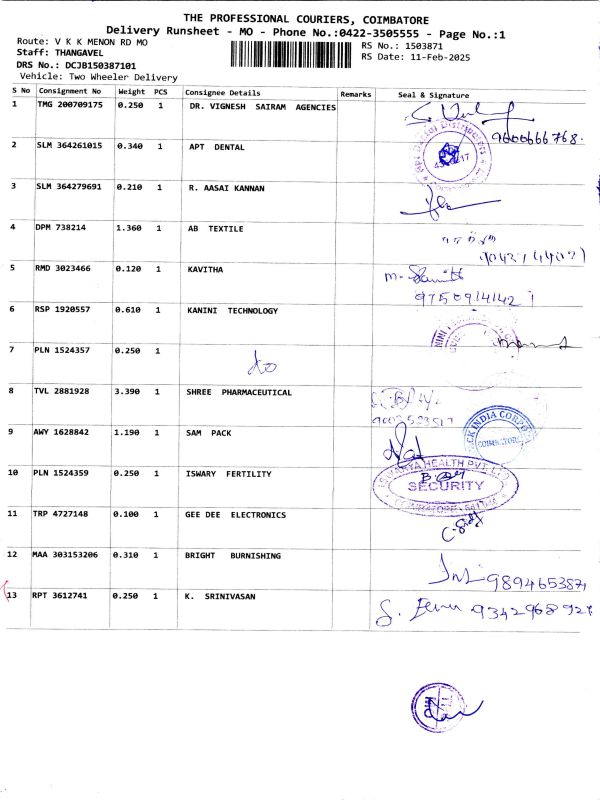 THE PROFESSIONAL COURIERS, COIMBATORE
Delivery Runsheet - MO - Phone No.:0422-3505555 - Page No.:1
Route: V K K MENON RD MO
RS No.: 1503871
Staff: THANGAVEL
RS Date: 11-Feb-2025
DRS No.: DCJB150387101
Vehicle: Two Wheeler Delivery
S No Consignment No Weight PCS Consignee Details Remarks Seal & Signature
1 TMG 200709175 0.250 1 DR. VIGNESH SAIRAM AGENCIES
9600666768.
2 SLM 364261015 0.340 1 APT DENTAL
3 SLM 364279691 0.210 1 R. AASAI KANNAN
4 DPM 738214 1.360 1 AB TEXTILE
5 RMD 3023466 0.120 1 KAVITHA
6 RSP 1920557 0.610 1 KANINI TECHNOLOGY
7 PLN 1524357 0.250 1
8 TVL 2881928 3.390 1 SHREE PHARMACEUTICAL
9 AWY 1628842 1.190 1 SAM PACK
COIMBATORE
10 PLN 1524359 0.250 1 ISWARY FERTILITY
SECURITY
11 TRP 4727148 0.100 1 GEE DEE ELECTRONICS
12 MAA 303153206 0.310 1 BRIGHT BURNISHING
13 RPT 3612741 0.250 1 K. SRINIVASAN